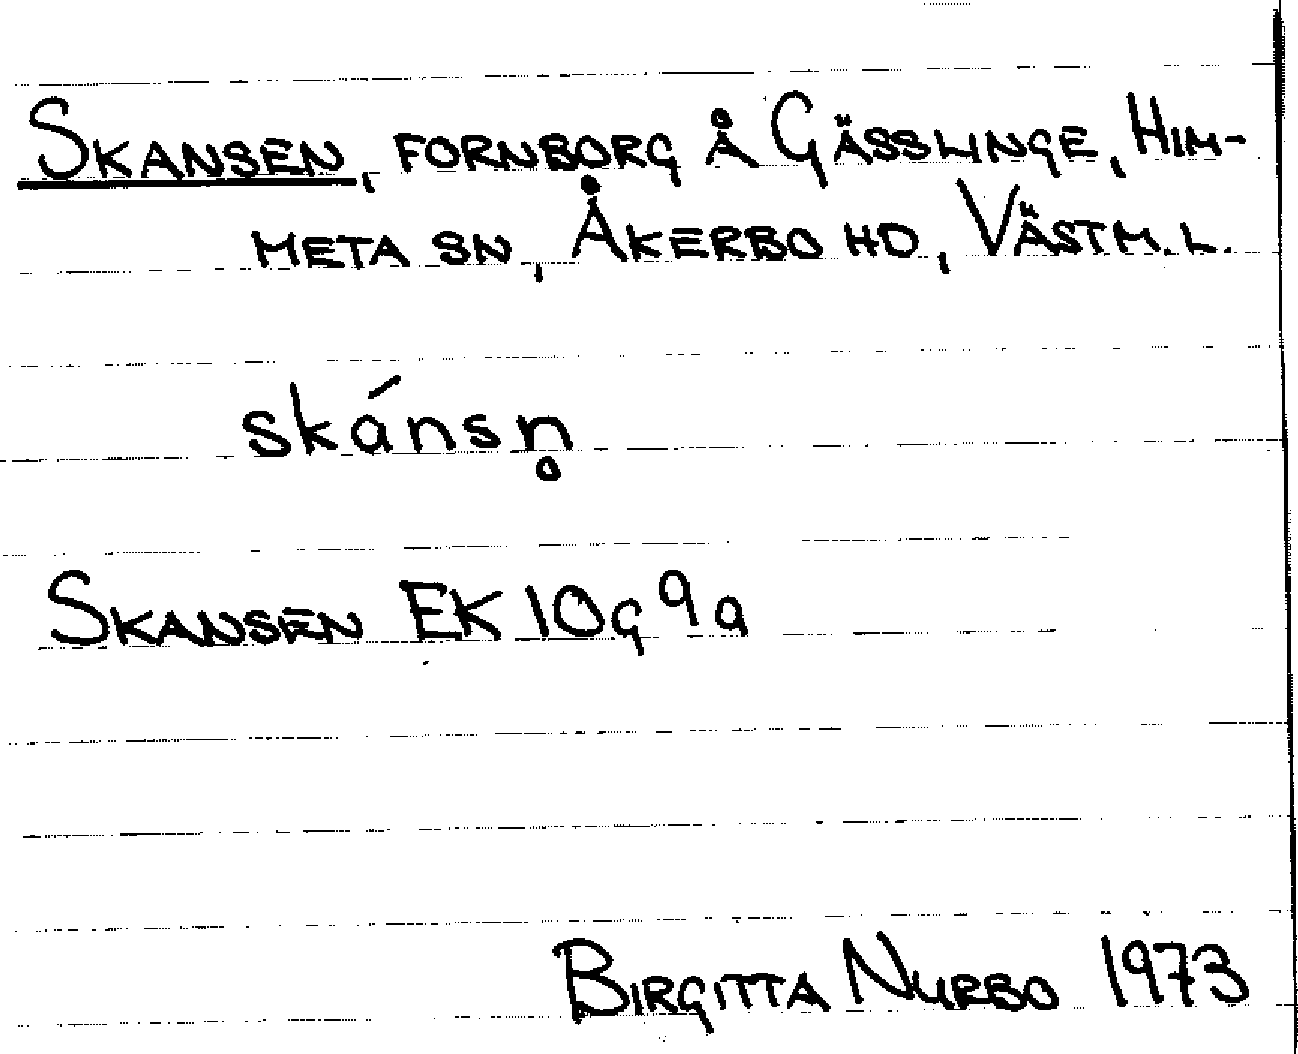 SKANSEN, FORNBORG Å GÄSSLINGE, HIM-
META SN, ÅKERBO HD, VÄSTM. L.
skánsn̥
SKANSEN EK 10g 9a
BIRGITTA NURBO 1973